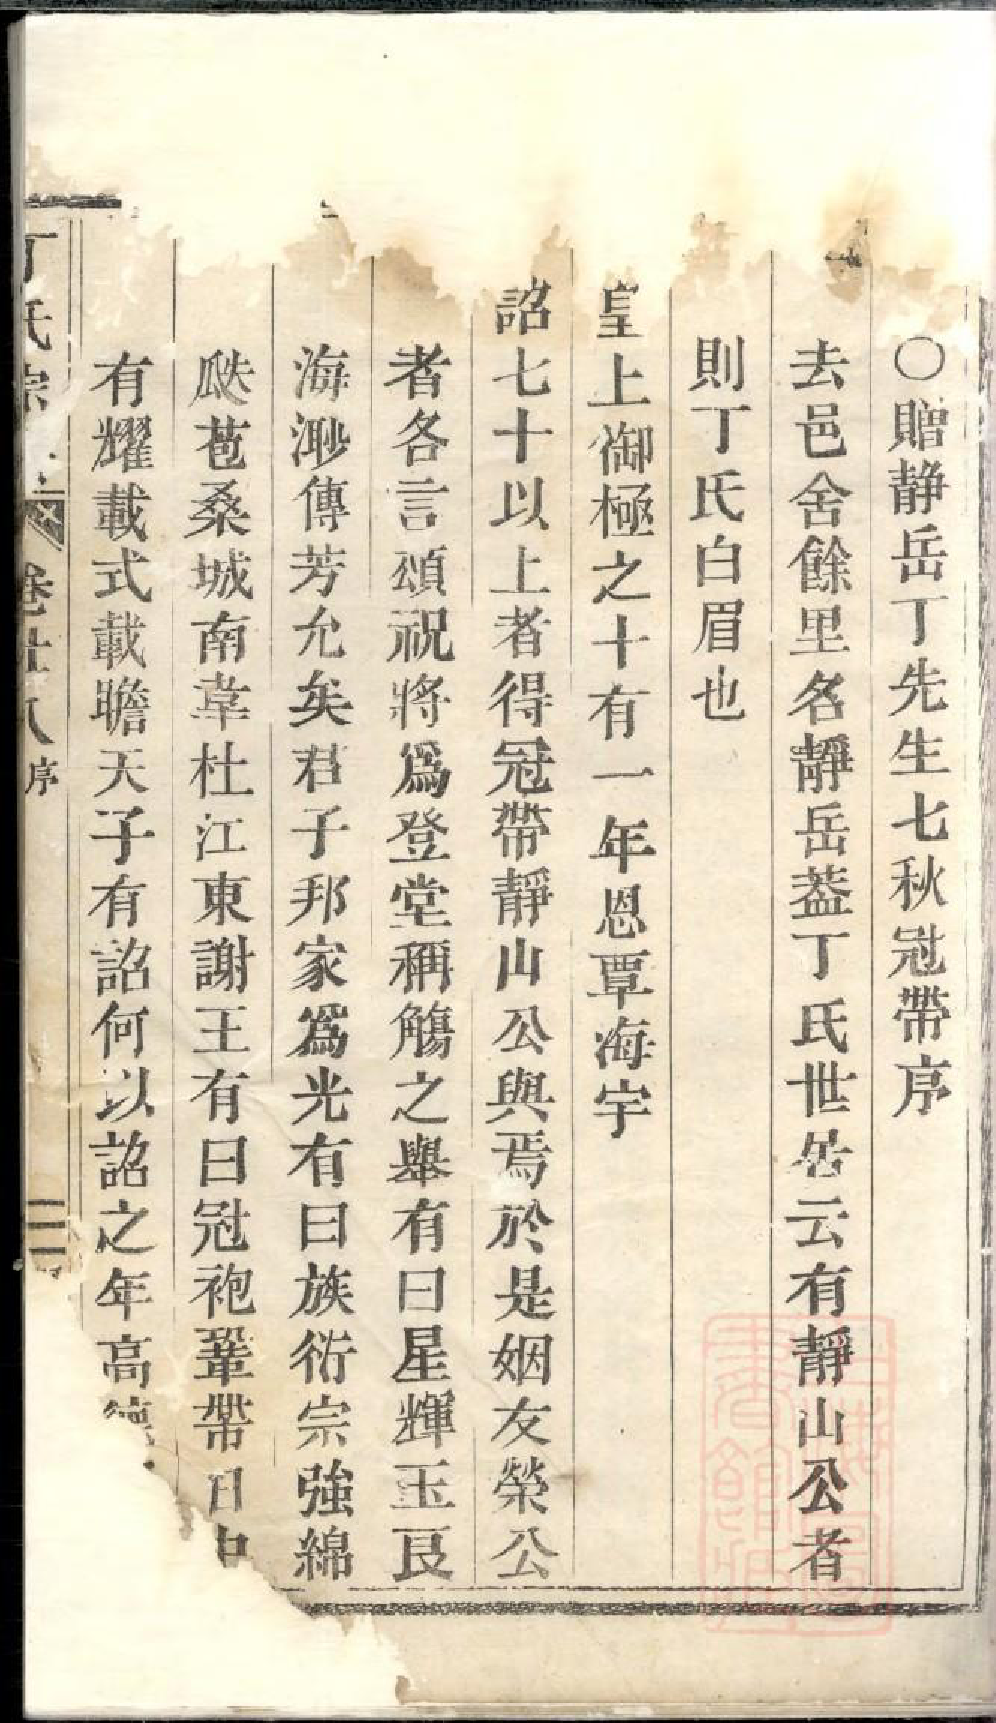 ○贈静岳丁先生七秋冠帶序
去邑舍餘里名靜岳葢丁氏世居云有靜山公者
則丁氏白眉也
皇上御極之十有一年恩覃海宇
詔七十以上者得冠帶靜山公與焉於是姻友榮公
者各言頌祝將爲登堂稱觴之舉有曰星輝玉艮
海渺傳芳允矣君子邦家爲光有曰族衍宗強綿
瓞苞桑城南韋杜江東謝王有曰冠袍鞶帶日中
有耀載式載瞻天子有詔何以詔之年高德
丁氏宗 卷廿八 序 二